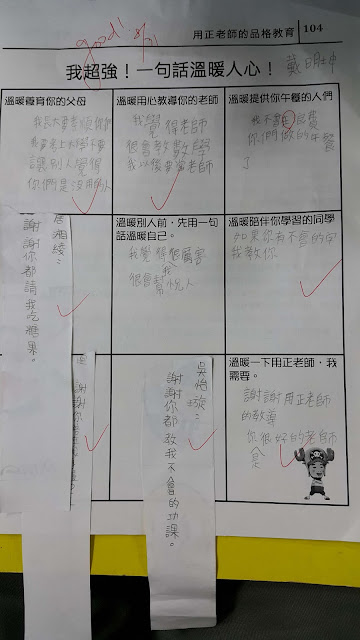 good! 8/21
用正老師的品格教育 104
我超強！一句話溫暖人心！
溫暖養育你的父母
我長大要孝順你們
讓別人覺得
溫暖用心教導你的老師
我覺得老師
很會教數學
我以後要當老師
溫暖提供你午餐的人們
我不會浪費
你們做的午餐
了
謝謝你都請我吃糖果。
溫暖別人前，先用一句
話溫暖自己。
我覺得我很厲害
很會幫忙人
溫暖陪伴你學習的同學
如果你有不會的字
我教你
謝謝你
吳怡璇：
謝謝你都教我不會的功課。
溫暖一下用正老師，我
需要。
謝謝用正老師
的教導
你很好的老師